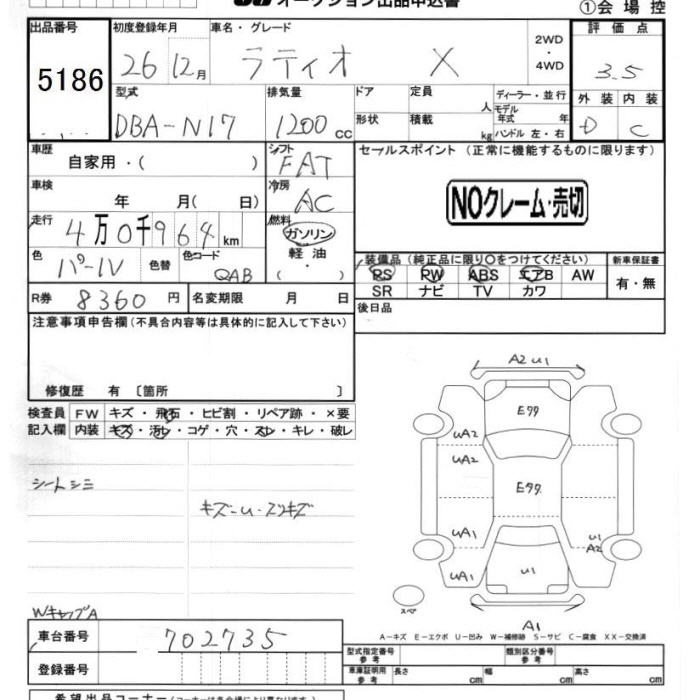 オークション出品申込書 ①会場控
出品番号 初度登録年月 車名・グレード 評価点
5186 26 12月 ラティオ X 2WD・4WD 3.5
型式 排気量 ドア 定員 人 ディーラー・並行 外装 内装
DBA-N17 1200cc 形状 積載 kg モデル年式 年 ハンドル 左・右 D C
車歴 シフト セールスポイント (正常に機能するものに限ります)
自家用・( ) FAT
車検 冷房 NOクレーム・売切
年 月( 日) AC
走行 燃料
4万0千964km ガソリン
色 色替 色コード 軽油 装備品 (純正品に限り○をつけてください) 新車保証書
パールV QAB ・( ) PS PW ABS エアB AW 有・無
SR ナビ TV カワ
R券 8360円 名変期限 月 日 後日品
注意事項申告欄(不具合内容等は具体的に記入して下さい)
修復歴 有 〔箇所 〕
検査員 FW キズ・飛石・ヒビ割・リペア跡・×要
記入欄 内装 キズ・汚レ・コゲ・穴・スレ・キレ・破レ
シートシミ
キズ-U・スリキズ
WキャップA
A2 U1
E77
UA2
UA2
E77
UA1 U1
A2
UA1 U1
スペア
A1
A-キズ E-エクボ U-凹み W-補修跡 S-サビ C-腐食 XX-交換済
車台番号 702735
型式指定番号 参考 類別区分番号 参考
登録番号 車庫証明用 参考 長さ cm 幅 cm 高さ cm
希望出品コーナー